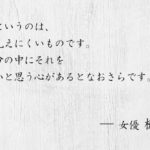 というのは、
見えにくいものです。
分の中にそれを
いと思う心があるとなおさらです。
― 女優